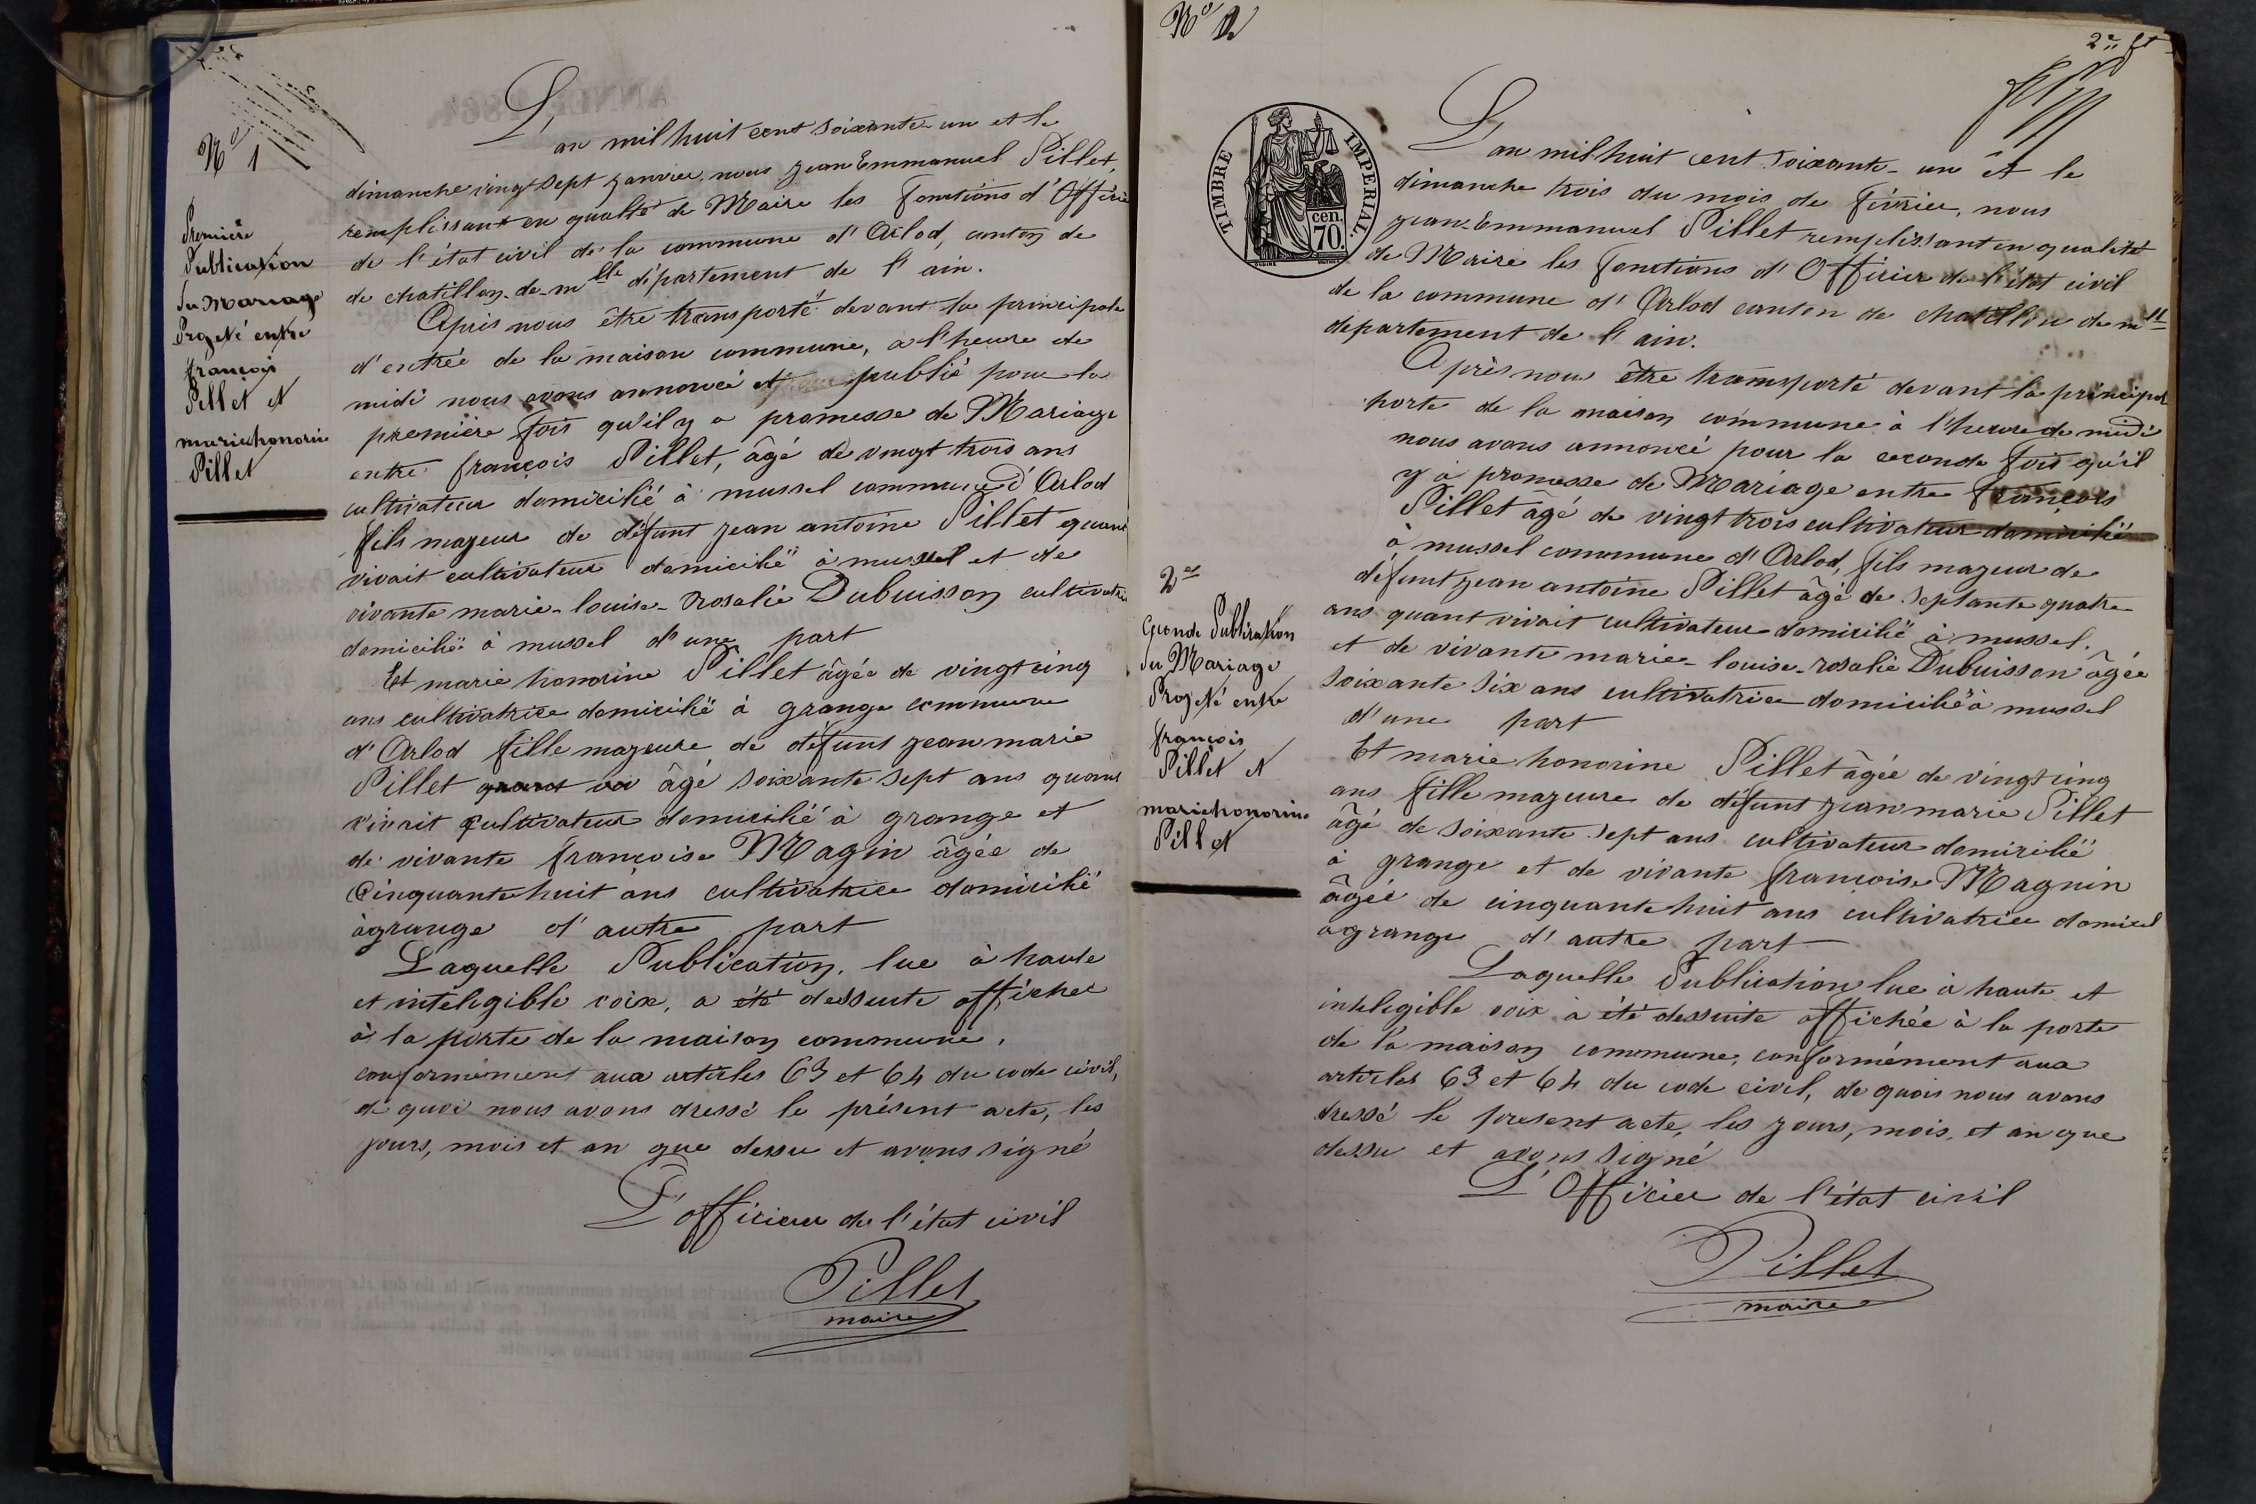 N° 1
Première
Publication
du Mariage
Projeté entre
françois
Pillet et
marie honorine
Pillet
L'an mil huit cent soixante-un et le
dimanche vingt sept janvier, nous jean Emmanuel Pillet,
remplissant en qualité de Maire les fonctions d'Officier
de l'état civil de la commune d'Arlod, canton de
de chatillon-de-mlle département de l'ain.
Après nous être transporté devant la principale
d'entrée de la maison commune, a l'heure de
midi nous avons annoncé et publié pour la
première fois qu'il y a promesse de Mariage
entre françois Pillet, âgé de vingt trois ans
cultivateur domicilié à mussel commune d'Arlod
fils majeur de défunt jean antoine Pillet quant
vivait cultivateur domicilié à mussel et de
vivante marie-louise-rosalie Dubuisson cultivatrice
domicilié à mussel d'une part
Et marie honorine Pillet âgée de vingt cinq
ans cultivatrice domicilié à grange commune
d'Arlod fille majeure de défunt jean marie
Pillet âgé soixante sept ans quant
vivait cultivateur domicilié à grange et
de vivante françoise Magnin âgée de
Cinquante huit ans cultivatrice domicilié
à grange d'autre part
Laquelle Publication, lue à haute
et inteligible voix, a été dessuite afficher
à la porte de la maison commune,
conformément aux articles 63 et 64 du code civil,
de quoi nous avons dressé le présent acte, les
jours, mois et an que dessu et avons signé
L'officier de l'état civil
Pillet
maire
N° 2
2e ft
TIMBRE IMPERIAL.
cen.
70.
2e
Seconde Publication
du Mariage
Projeté entre
françois
Pillet et
marie honorine
Pillet
L'an mil huit cent soixante-un et le
dimanche trois du mois de février, nous
jean-Emmanuel Pillet remplissant en qualité
de Maire les fonctions d'Officier de l'état civil
de la commune d'Arlod canton de chatillon de mlle
departement de l'ain.
Après nous être transporté devant la principal
porte de la maison commune à l'heure de midi
nous avons annoncé pour la seconde fois qu'il
y à promesse de Mariage entre françois
Pillet âgé de vingt trois cultivateur domicilié
à mussel commune d'Arlod, fils majeur de
défunt jean antoine Pillet âgé de septante quatre
ans quant vivait cultivateur domicilié à mussel.
et de vivante marie-louise-rosalie Dubuisson âgée
soixante six ans cultivatrice domicilié à mussel
d'une part
Et marie honorine Pillet âgée de vingt cinq
ans fille majeure de défunt jean marie Pillet
âgé de soixante sept ans cultivateur domicilié
à grange et de vivante françoise Magnin
âgée de cinquante huit ans cultivatrice domicil
a grange d'autre part
Laquelle Publication lue à haute et
inteligible voix à été dessuite affichée à la porte
de la maison commune, conformément aux
articles 63 et 64 du code civil, de quoi nous avons
dressé le present acte, les jours, mois, et an que
dessu et avons signé
L'Officier de l'état civil
Pillet
maire